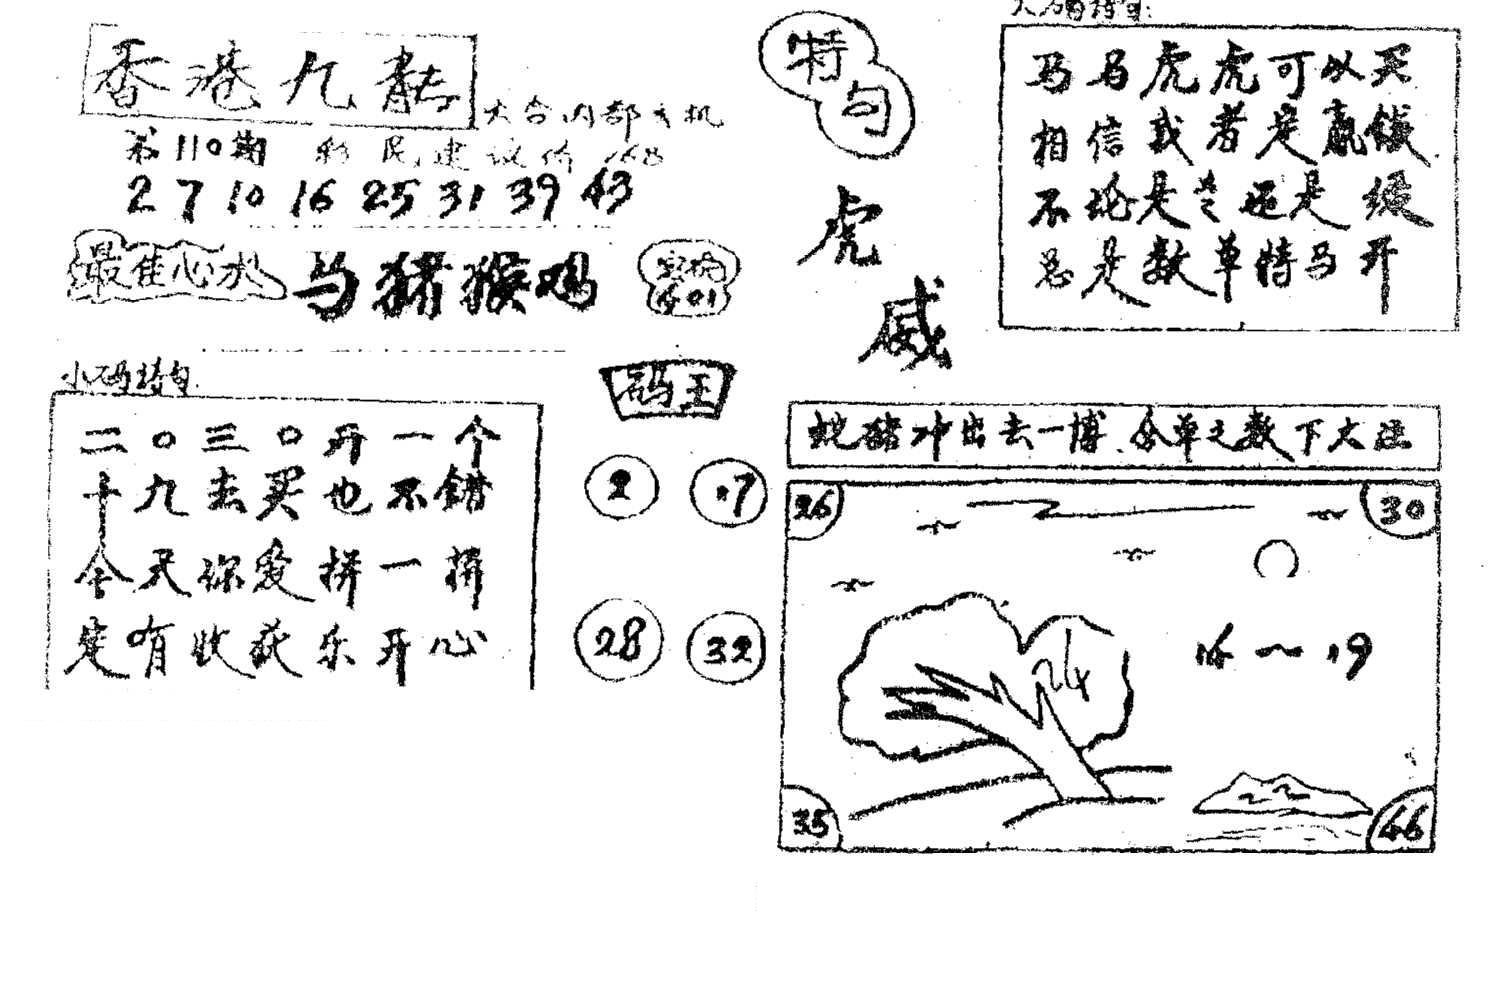 香港九龙
六合内部玄机
第110期 彩民建议价168
2 7 10 16 25 31 39 43
最佳心水
马猪猴鸡
小码诗句
二〇三〇开一个
十九去买也不错
今天你爱拼一拼
定有收获乐开心
码王
2 17
28 32
特句
虎威
马马虎虎可以买
相信或者是赢钱
不论是 还是绿
总是数单特马开
蛇猪冲出去一博 合单之数下大注
26 30
24
16～19
35 46